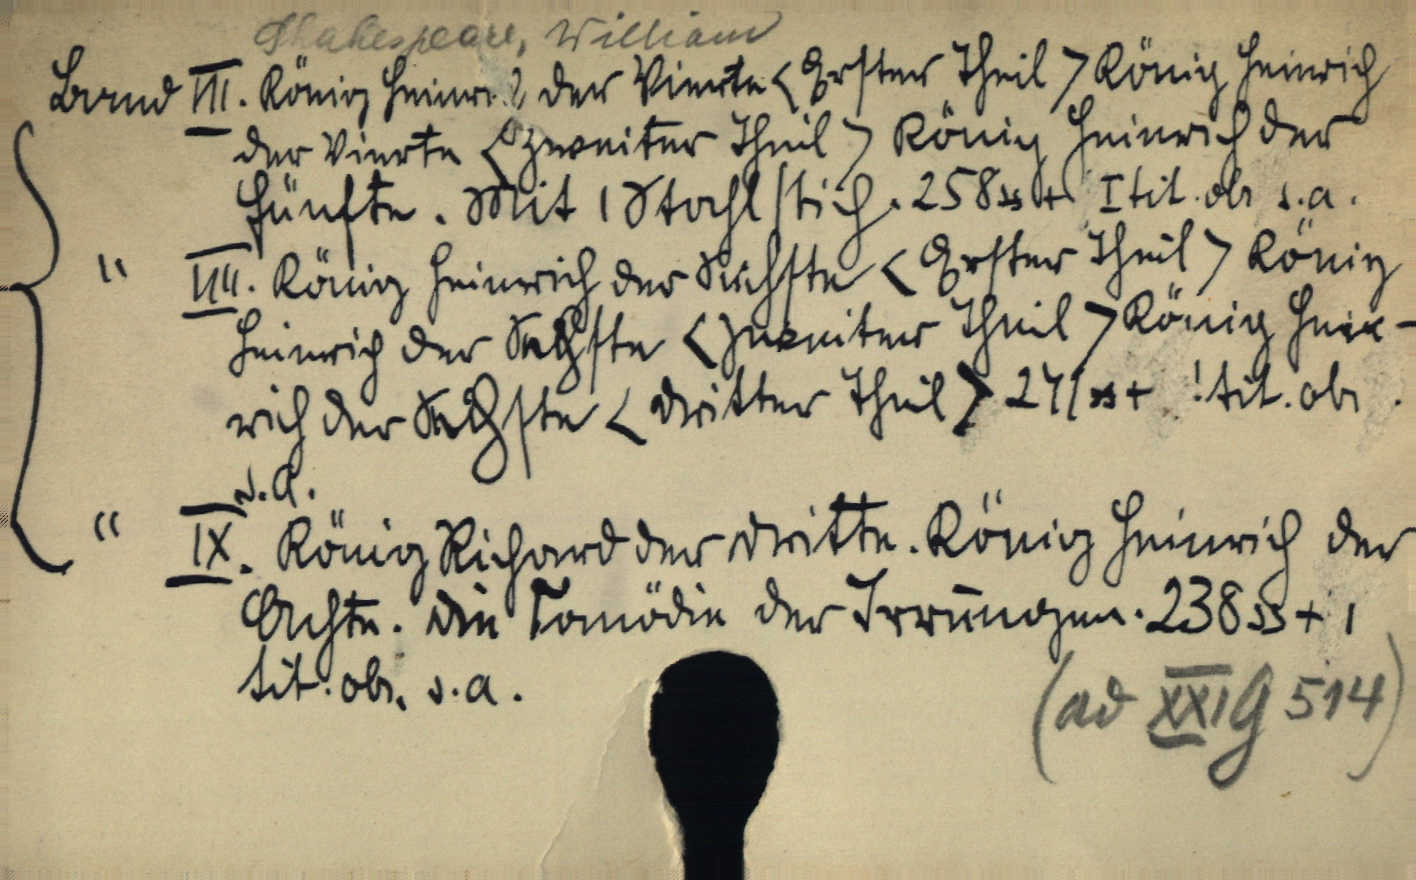 Shakespeare, William
Band VII. König Heinrich der Vierte <Erster Theil> König Heinrich
der Vierte <Zweiter Theil> König Heinrich der
Fünfte. Mit 1 Stahlstich. 258 ss + 1 tit. ob. s.a.
" VIII. König Heinrich der Sechste <Erster Theil> König
Heinrich der Sechste <Zweiter Theil> König Hein-
rich der Sechste <Dritter Theil> 271 ss + 1 tit. ob.
s.a.
" IX. König Richard der Dritte. König Heinrich der
Achte. Die Comödie der Irrungen. 238 ss + 1
tit. ob. s.a.
(ad XXI G 514)